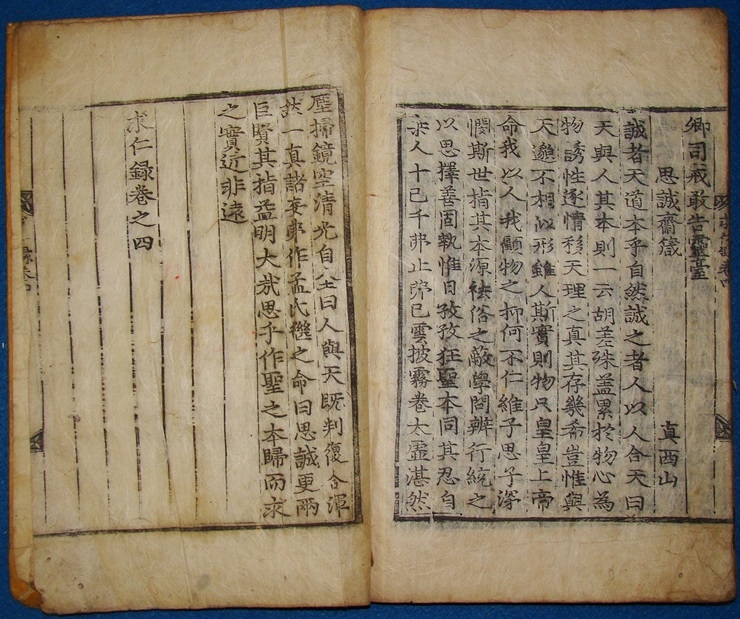 卿司戒敢告靈臺
思誠齋箴 真西山
誠者天道本乎自然誠之者人以人合天曰
天與人其本則一云胡差殊盖累於物心為
物誘性逐情移天理之真其存幾希豈惟與
天邈不相似形雖人斯實則物只皇皇上帝
命我以人我顧物之抑何不仁維子思子深
憫斯世指其本源祛俗之蔽學問辨行統之
以思擇善固執惟日孜孜狂聖本同其忍自
棄人十己千弗止弗已雲披霧卷太虛湛然
塵掃鏡空清光自全曰人與天旣判復合渾
然一真諸妄弗作孟氏繼之命曰思誠更兩
巨賢其指益明大哉思乎作聖之本歸而求
之實近非遠
求仁録卷之四